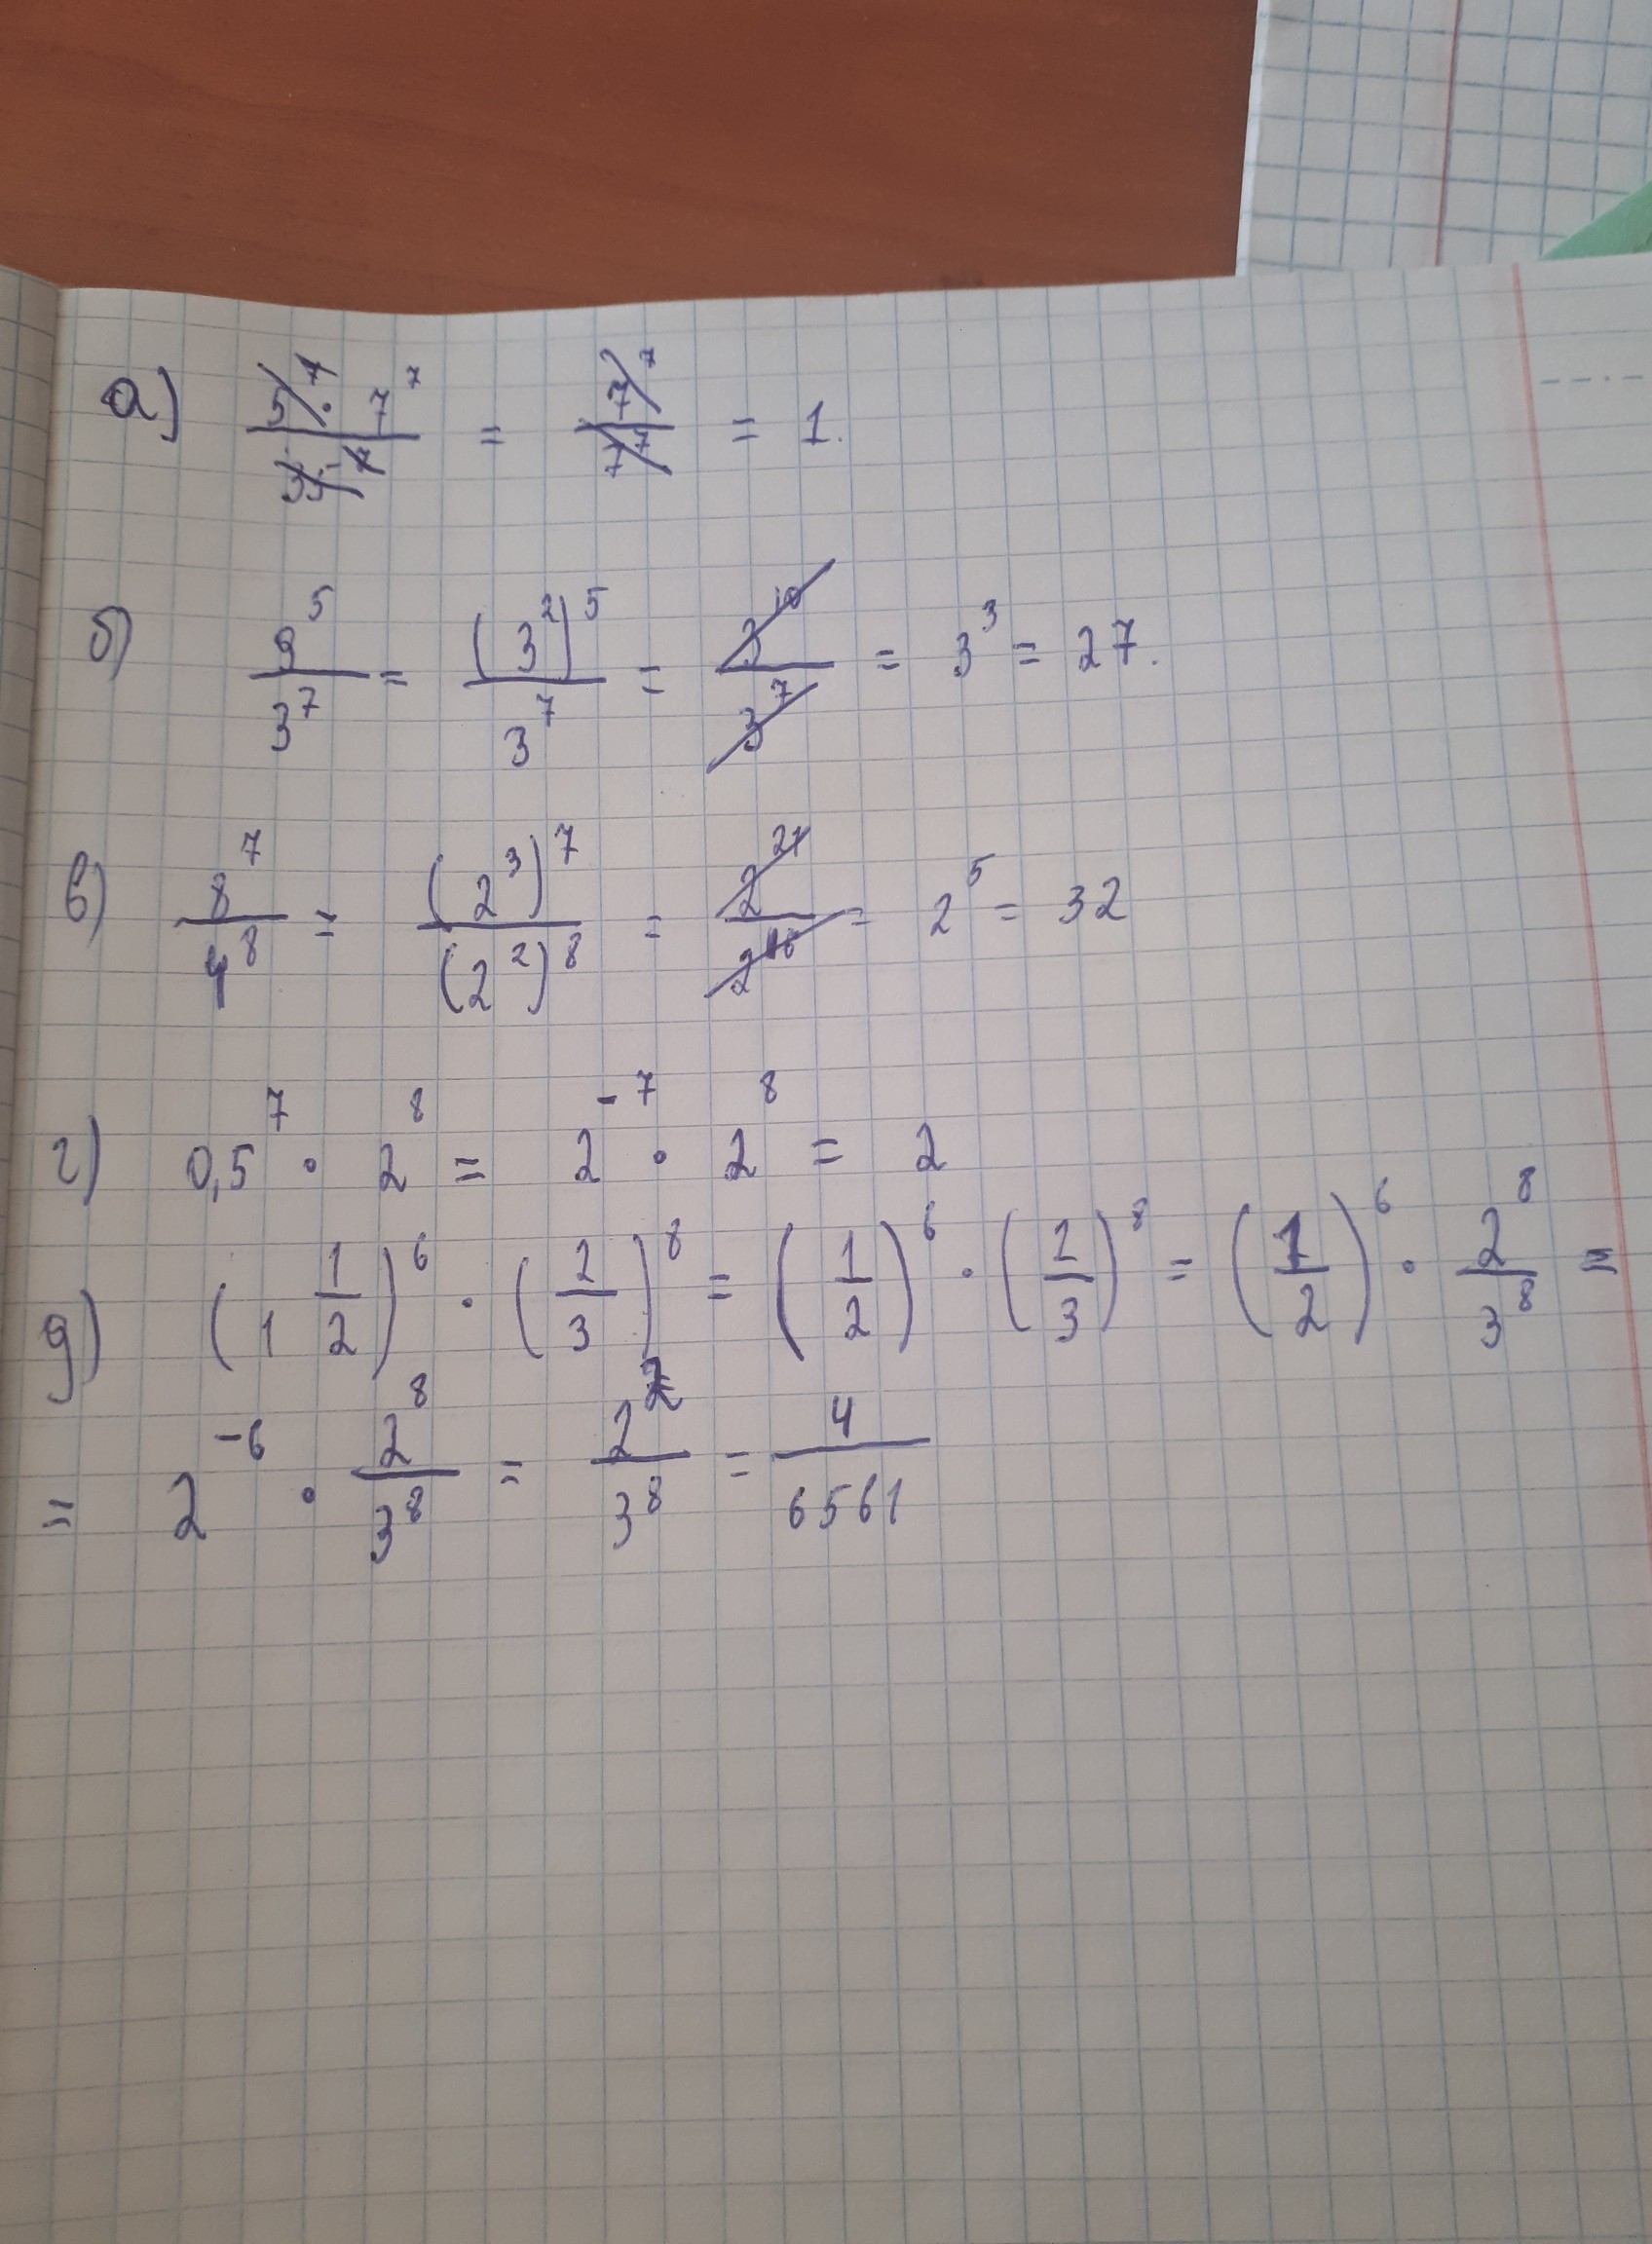 а) (5⁷ · 7⁷)/(35⁷) = 7⁷/7⁷ = 1.
б) 9⁵/3⁷ = (3²)⁵/3⁷ = 3¹⁰/3⁷ = 3³ = 27.
в) 8⁷/4⁸ = (2³)⁷/(2²)⁸ = 2²¹/2¹⁶ = 2⁵ = 32
г) 0,5⁷ · 2⁸ = 2⁻⁷ · 2⁸ = 2
д) (1 1/2)⁶ · (2/3)⁸ = (1/2)⁶ · (2/3)⁸ = (1/2)⁶ · 2⁸/3⁸ =
= 2⁻⁶ · 2⁸/3⁸ = 2²/3⁸ = 4/6561